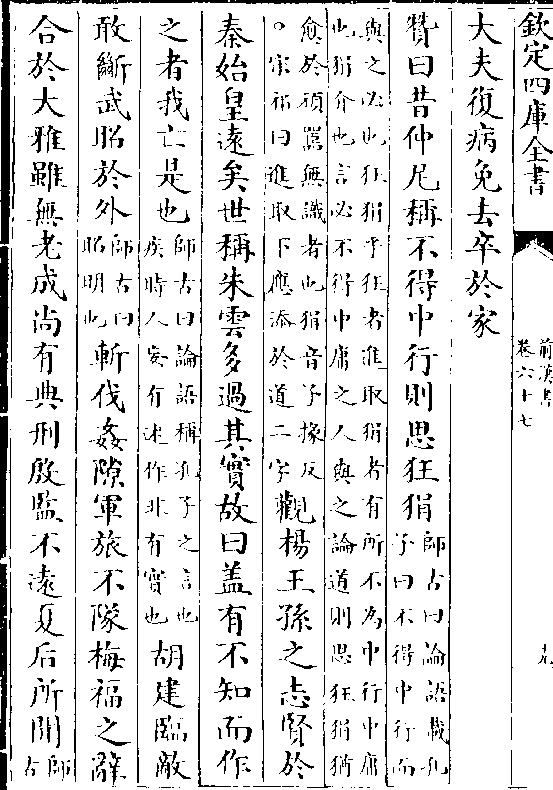 欽定四庫全書
前漢書
卷六十七
九
大夫復病免去卒於家
贊曰昔仲尼稱不得中行則思狂狷師古曰論語載孔
子曰不得中行而
與之必也狂狷乎狂者進取狷者有所不為中行中庸
也狷介也言必不得中庸之人與之論道則思狂狷猶
愈於頑嚚無識者也狷音予掾反
○宋祁曰進取下應添於道二字觀楊王孫之志賢於
秦始皇遠矣世稱朱雲多過其實故曰盖有不知而作
之者我亡是也師古曰論語稱孔子之言也
疾時人妄有述作非有實也胡建臨敵
敢斷武昭於外師古曰
昭明也斬伐姦隙軍旅不隊梅福之辭
合於大雅雖無老成尚有典刑殷監不遠夏后所聞師
古